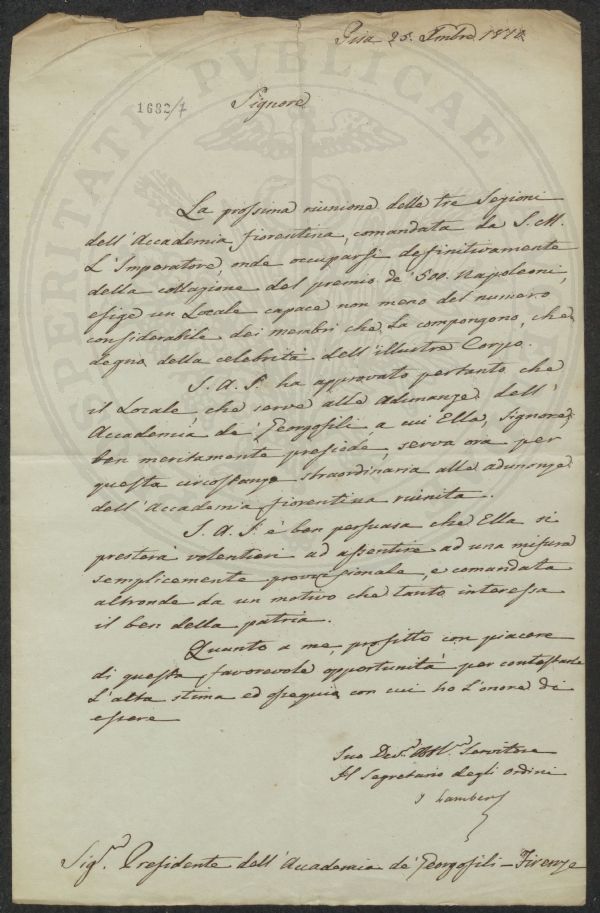 Pisa 25. Xmbre 1812
1682/7
Signore
La prossima riunione delle tre Sezioni
dell'Accademia fiorentina, comandata da S. M.
L'Imperatore, onde occuparsi definitivamente
della collazione del premio de' 500. Napoleoni,
esige un Locale capace non meno del numero
considerabile dei membri che La compongono, che
degno della celebrità dell'illustre Corpo.
S. A. I. ha approvato pertanto che
il Locale che serve alle adunanze dell'
Accademia de' Georgofili a cui Ella, Signore,
ben meritamente presiede, serva ora per
questa circostanza straordinaria alle adunanze
dell'Accademia fiorentina riunita.
S. A. I. è ben persuasa che Ella si
presterà volentieri ad assentire ad una misura
semplicemente provvisionale, e comandata
altronde da un motivo che tanto interessa
il ben della patria.
Quanto a me, profitto con piacere
di questa favorevole opportunità per contestarle
L'alta stima ed ossequio con cui ho L'onore di
essere
Suo Dev.º Obbl.º Servitore
Il Segretario degli ordini
Sig.r Presidente dell'Accademia de' Georgofili - Firenze
PERITATI PUBLICAE